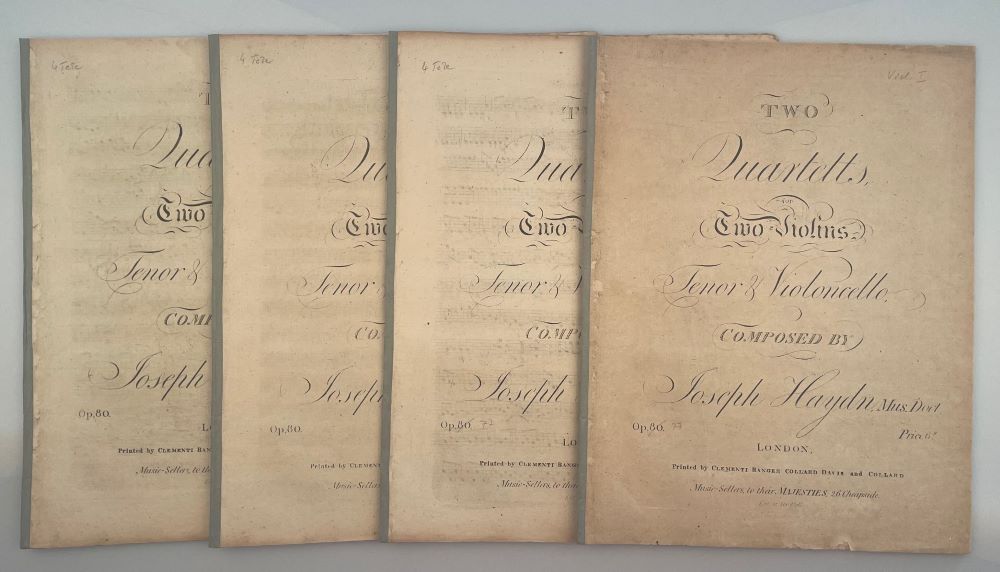 4 Tete
T
Qua
Two
Tenor &
COMP
Joseph
Op. 80.
Lo
Printed by CLEMENTI BAN
Music-Sellers, to th
4 Tete
Qu
Two
Tenor &
CO
Joseph
Op. 80.
Printed by CLEMENTI
Music-Sel
4 Tete
T
Qua
Two
Tenor &
COMP
Joseph
Op. 80. 77
Lo
Printed by CLEMENTI BANG
Music-Sellers, to thei
Viol. I
TWO
Quartetts,
FOR
Two Violins,
Tenor & Violoncello,
COMPOSED BY
Joseph Haydn, Mus. Doct.
Op. 80. 77
Price 6s
LONDON,
Printed by CLEMENTI BANGER COLLARD DAVIS and COLLARD
Music-Sellers, to their MAJESTIES, 26 Cheapside.